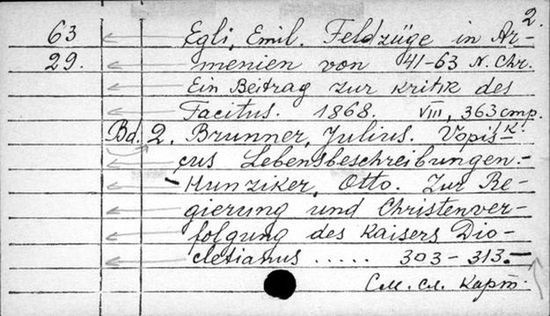 2.
63 Egli, Emil. Feldzüge in Ar-
29. menien von 41-63 N. Chr.
Ein Beitrag zur Kritik des
Tacitus. 1868. VIII, 363 стр.
Bd. 2. Brunner, Julius. Vopis- к.
cus Lebensbeschreibungen.-
-Hunziker, Otto. Zur Re-
gierung und Christenver-
folgung des Kaisers Dio-
cletianus ..... 303-313.-
См. сл. карт.